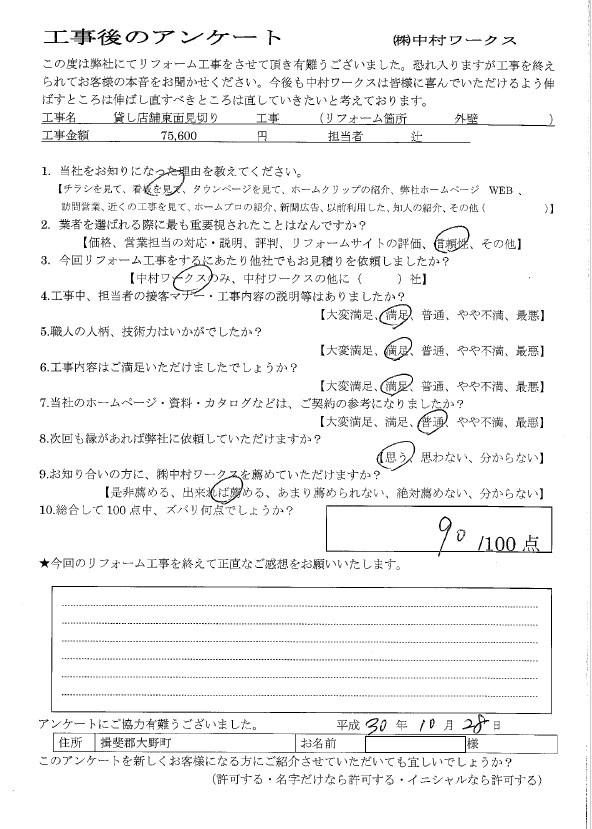 工事後のアンケート ㈱中村ワークス
この度は弊社にてリフォーム工事をさせて頂き有難うございました。恐れ入りますが工事を終え
られてお客様の本音をお聞かせください。今後も中村ワークスは皆様に喜んでいただけるよう伸
ばすところは伸ばし直すべきところは直していきたいと考えております。
工事名 貸し店舗東面見切り 工事 (リフォーム箇所 外壁 )
工事金額 75,600 円 担当者 辻
1. 当社をお知りになった理由を教えてください。
【チラシを見て、看板を見て、タウンページを見て、ホームクリップの紹介、弊社ホームページ WEB 、
訪問営業、近くの工事を見て、ホームプロの紹介、新聞広告、以前利用した、知人の紹介、その他（ ）】
2. 業者を選ばれる際に最も重要視されたことはなんですか？
【価格、営業担当の対応・説明、評判、リフォームサイトの評価、信頼性、その他】
3. 今回リフォーム工事をするにあたり他社でもお見積りを依頼しましたか？
【中村ワークスのみ、中村ワークスの他に（ ）社】
4.工事中、担当者の接客マナー・工事内容の説明等はありましたか？
【大変満足、満足、普通、やや不満、最悪】
5.職人の人柄、技術力はいかがでしたか？
【大変満足、満足、普通、やや不満、最悪】
6.工事内容はご満足いただけましたでしょうか？
【大変満足、満足、普通、やや不満、最悪】
7.当社のホームページ・資料・カタログなどは、ご契約の参考になりましたか？
【大変満足、満足、普通、やや不満、最悪】
8.次回も縁があれば弊社に依頼していただけますか？
【思う、思わない、分からない】
9.お知り合いの方に、㈱中村ワークスを薦めていただけますか？
【是非薦める、出来れば薦める、あまり薦められない、絶対薦めない、分からない】
10.総合して100点中、ズバリ何点でしょうか？
90 /100 点
★今回のリフォーム工事を終えて正直なご感想をお願いいたします。
アンケートにご協力有難うございました。 平成 30 年 10 月 28 日
住所 揖斐郡大野町 お名前 様
このアンケートを新しくお客様になる方にご紹介させていただいても宜しいでしょうか？
（許可する・名字だけなら許可する・イニシャルなら許可する）